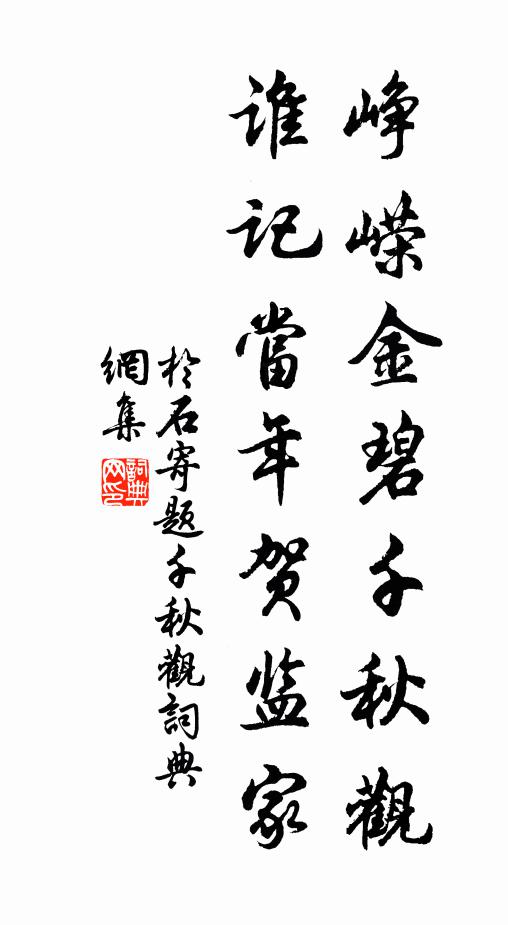 峥嵘金碧千秋觀
谁记當年贺监家
於石寄题千秋觀詞典
網集
詞典
网印